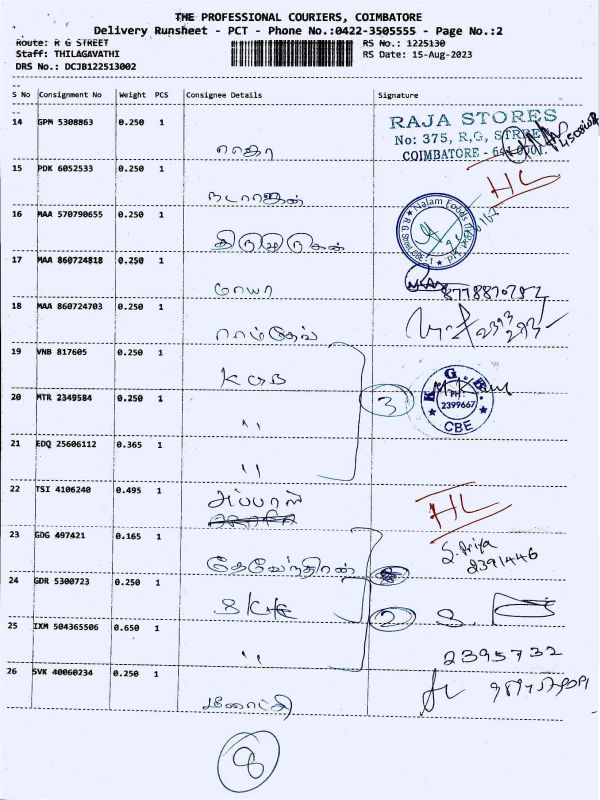 THE PROFESSIONAL COURIERS, COIMBATORE
Delivery Runsheet - PCT - Phone No.:0422-3505555 - Page No.:2
Route: R G STREET
RS No.: 1225130
Staff: THILAGAVATHI
RS Date: 15-Aug-2023
DRS No.: DCJB122513002
S No Consignment No Weight PCS Consignee Details Signature
14 GPM 5308863 0.250 1
ராஜா
RAJA STORES
No: 375, R,G, STREET
COIMBATORE - 641 0001.
15 PDK 6052533 0.250 1
நடராஜன்
HL
16 MAA 570790655 0.250 1
திருமுருகன்
Nalam Foods
17 MAA 860724818 0.250 1
மாயா
18 MAA 860724703 0.250 1
ராம்தேவ்
19 VNB 817605 0.250 1
KGB
20 MTR 2349584 0.250 1
"
3
K. G. B.
PH:
2399667
CBE
21 EDQ 25606112 0.365 1
"
22 TSI 4106240 0.495 1
HL
23 GDG 497421 0.165 1
தேவேந்திரன்
S. Priya
2391446
24 GDR 5300723 0.250 1
2
25 IXM 504365506 0.650 1
"
2395732
26 SVK 40060234 0.250 1
மீனாட்சி
8